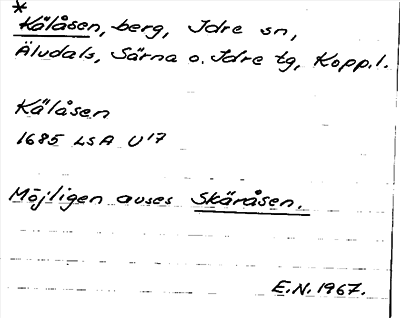 *
Kälåsen, berg, Idre sn,
Älvdals, Särna o. Idre tg, Kopp.l.
Kälåsen
1685 LSA U17
Möjligen avses Skäråsen.
E.N. 1967.